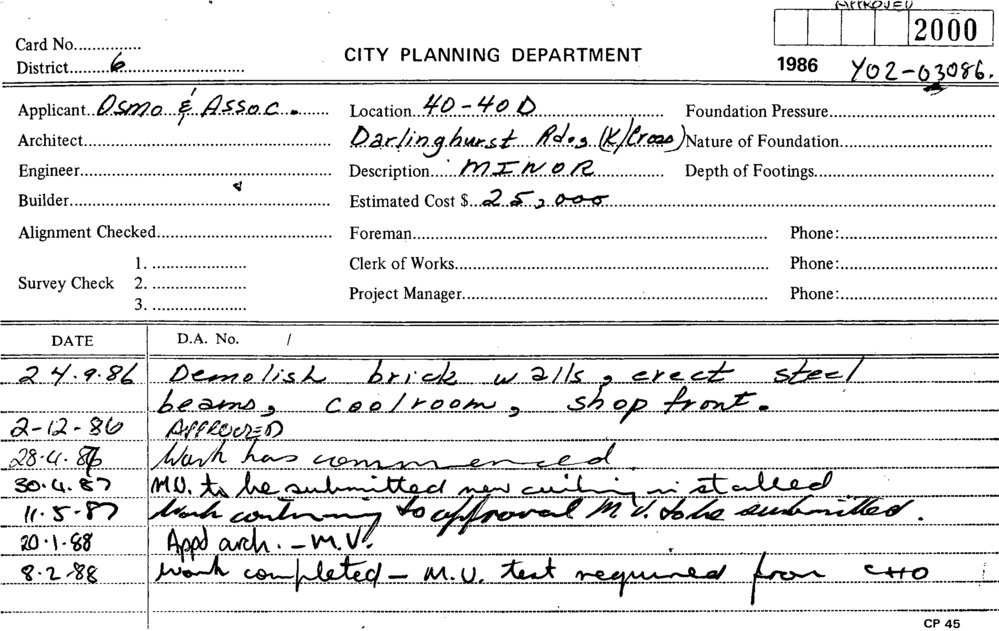 APPROVED
2000
Card No...............
CITY PLANNING DEPARTMENT
District........6
1986 Y02-03086.
Applicant..Osmo & Assoc. Location..40-40D Foundation Pressure
Architect Darlinghurst Rd., (K/Cross) Nature of Foundation
Engineer Description....MINOR Depth of Footings
Builder Estimated Cost $..25,000
Alignment Checked Foreman Phone:
Survey Check 1. Clerk of Works Phone:
2.
3. Project Manager Phone:
DATE D.A. No. /
24.9.86 Demolish brick walls, erect steel
beams, coolroom, shop front.
2-12-86 APPROVED
28.4.87 Work has commenced.
30.4.87 M.V. to be submitted new ceiling installed
11.5-87 Work continuing to approval M.V. to be submitted.
20.1.88 Appd arch. - M.V.
8.2.88 Work completed - M.V. test required from CHO
CP 45